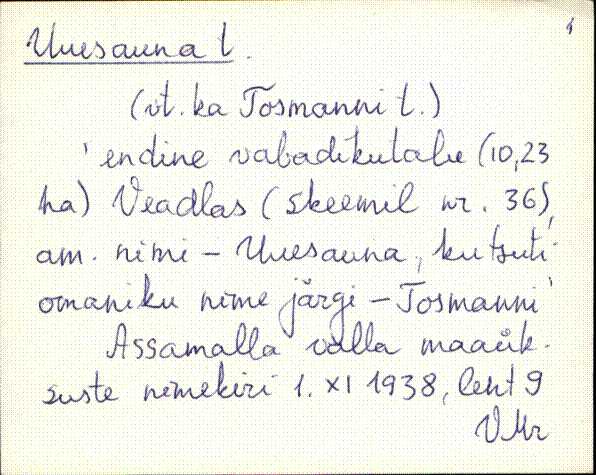 4
Uuesauna t.
(vt. ka Tosmanni t.)
'endine vabadikutalu (10,23
ha) Veadlas (skeemil nr. 36),
am. nimi - Uuesauna, kutsuti
omaniku nime järgi - Tosmanni'
Assamalla valla maaük-
suste nimekiri 1. XI 1938, leht 9
VMr